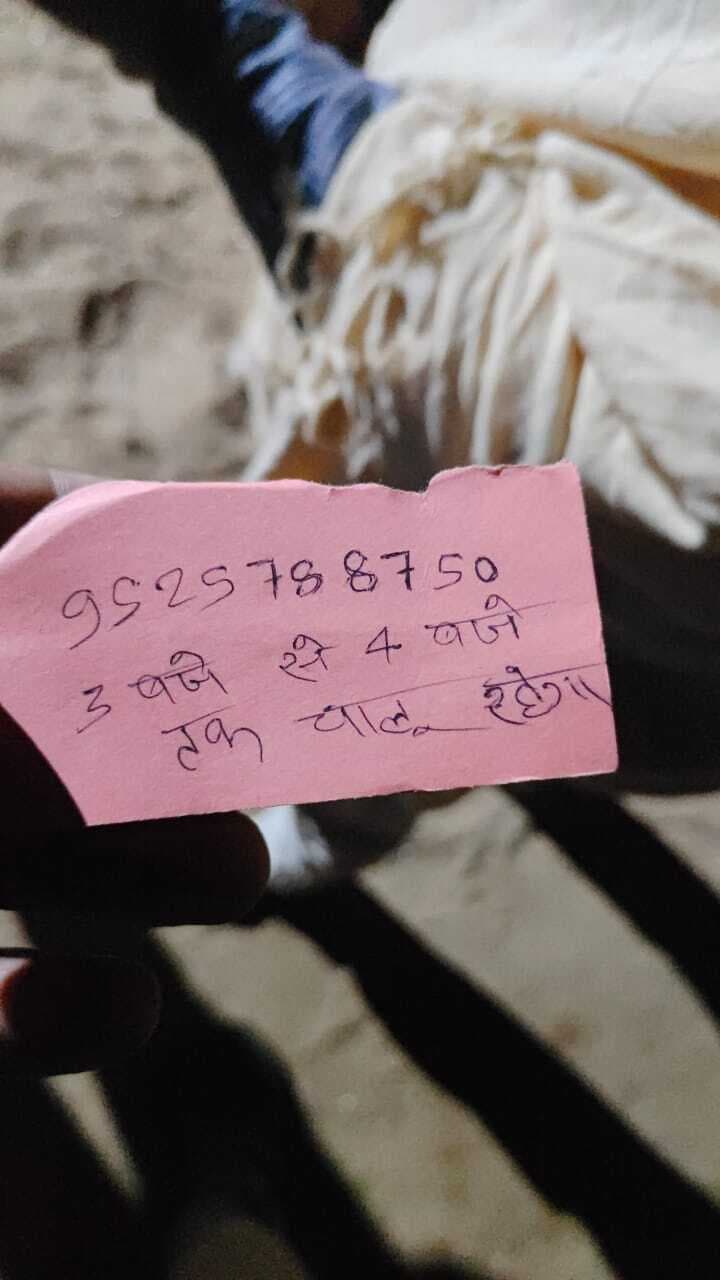 9525788750
3 बजे से 4 बजे
तक चालू रहेगा